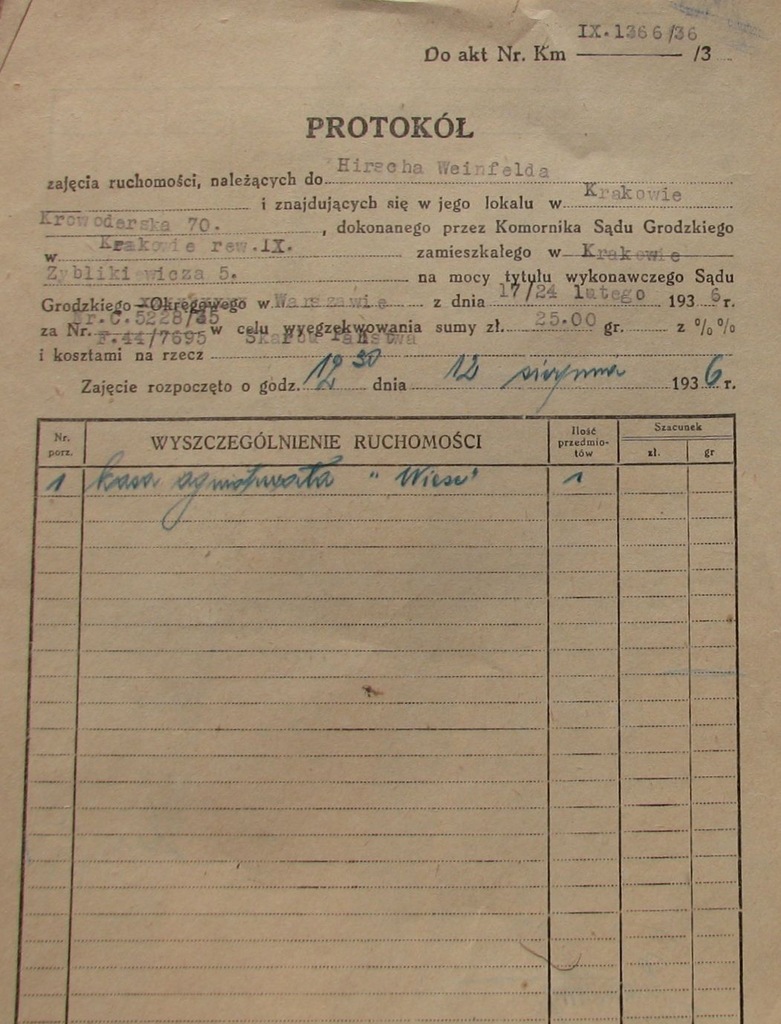 IX.1366/36
Do akt Nr. Km /3
PROTOKÓŁ
zajęcia ruchomości, należących do Hirscha Weinfelda
i znajdujących się w jego lokalu w Krakowie
Krowoderska 70. , dokonanego przez Komornika Sądu Grodzkiego
w Krakowie rew.IX. zamieszkałego w Krakowie
Zyblikiewicza 5. na mocy tytułu wykonawczego Sądu
Grodzkiego - Okręgowego w Warszawie z dnia 17/24 lutego 1936 r.
Nr.C.5228/35
za Nr. F.44/7695 w celu wyegzekwowania sumy zł. 25.00 gr. z %%
i kosztami na rzecz Skarbu Państwa
Zajęcie rozpoczęto o godz. 12 30 dnia 12 sierpnia 1936 r.
Nr. porz. WYSZCZEGÓLNIENIE RUCHOMOŚCI Ilość przedmiotów Szacunek zł. gr
1 kasa ogniotrwała "Wiese" 1